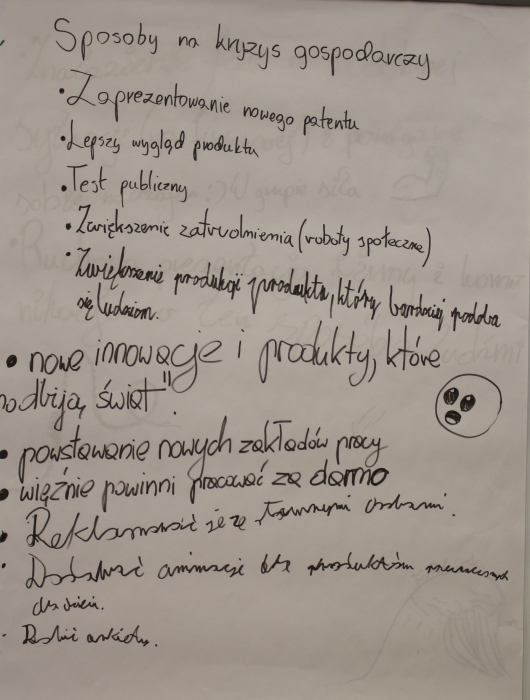 Sposoby na kryzys gospodarczy
• Zaprezentowanie nowego patentu
• Lepszy wygląd produktu
• Test publiczny
• Zwiększenie zatrudnienia (roboty społeczne)
• Zwiększenie produkcji produktu, który bardziej podoba
się ludziom.
• nowe innowacje i produkty, które
"podbiją świat".
• powstawanie nowych zakładów pracy
• więźnie powinni pracować za darmo
• Reklamować je ze sławnymi osobami.
• Dodawać animacje dla produktów
dla dzieci.
• Robić ankiety.